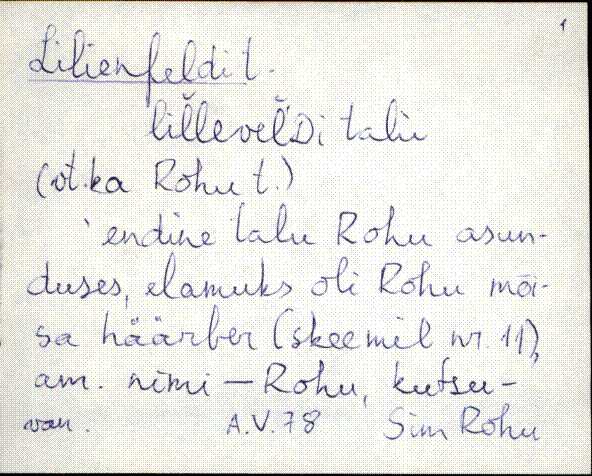 1
Lilienfeldi t.
lĭl̆level̆Di talu
(vt. ka Rohu t.)
`endine talu Rohu asun-
duses, elamuks oli Rohu mõi-
sa häärber (skeemil nr. 11),
am. nimi — Rohu, kutsu-
van. A.V. 78 Sim Rohu